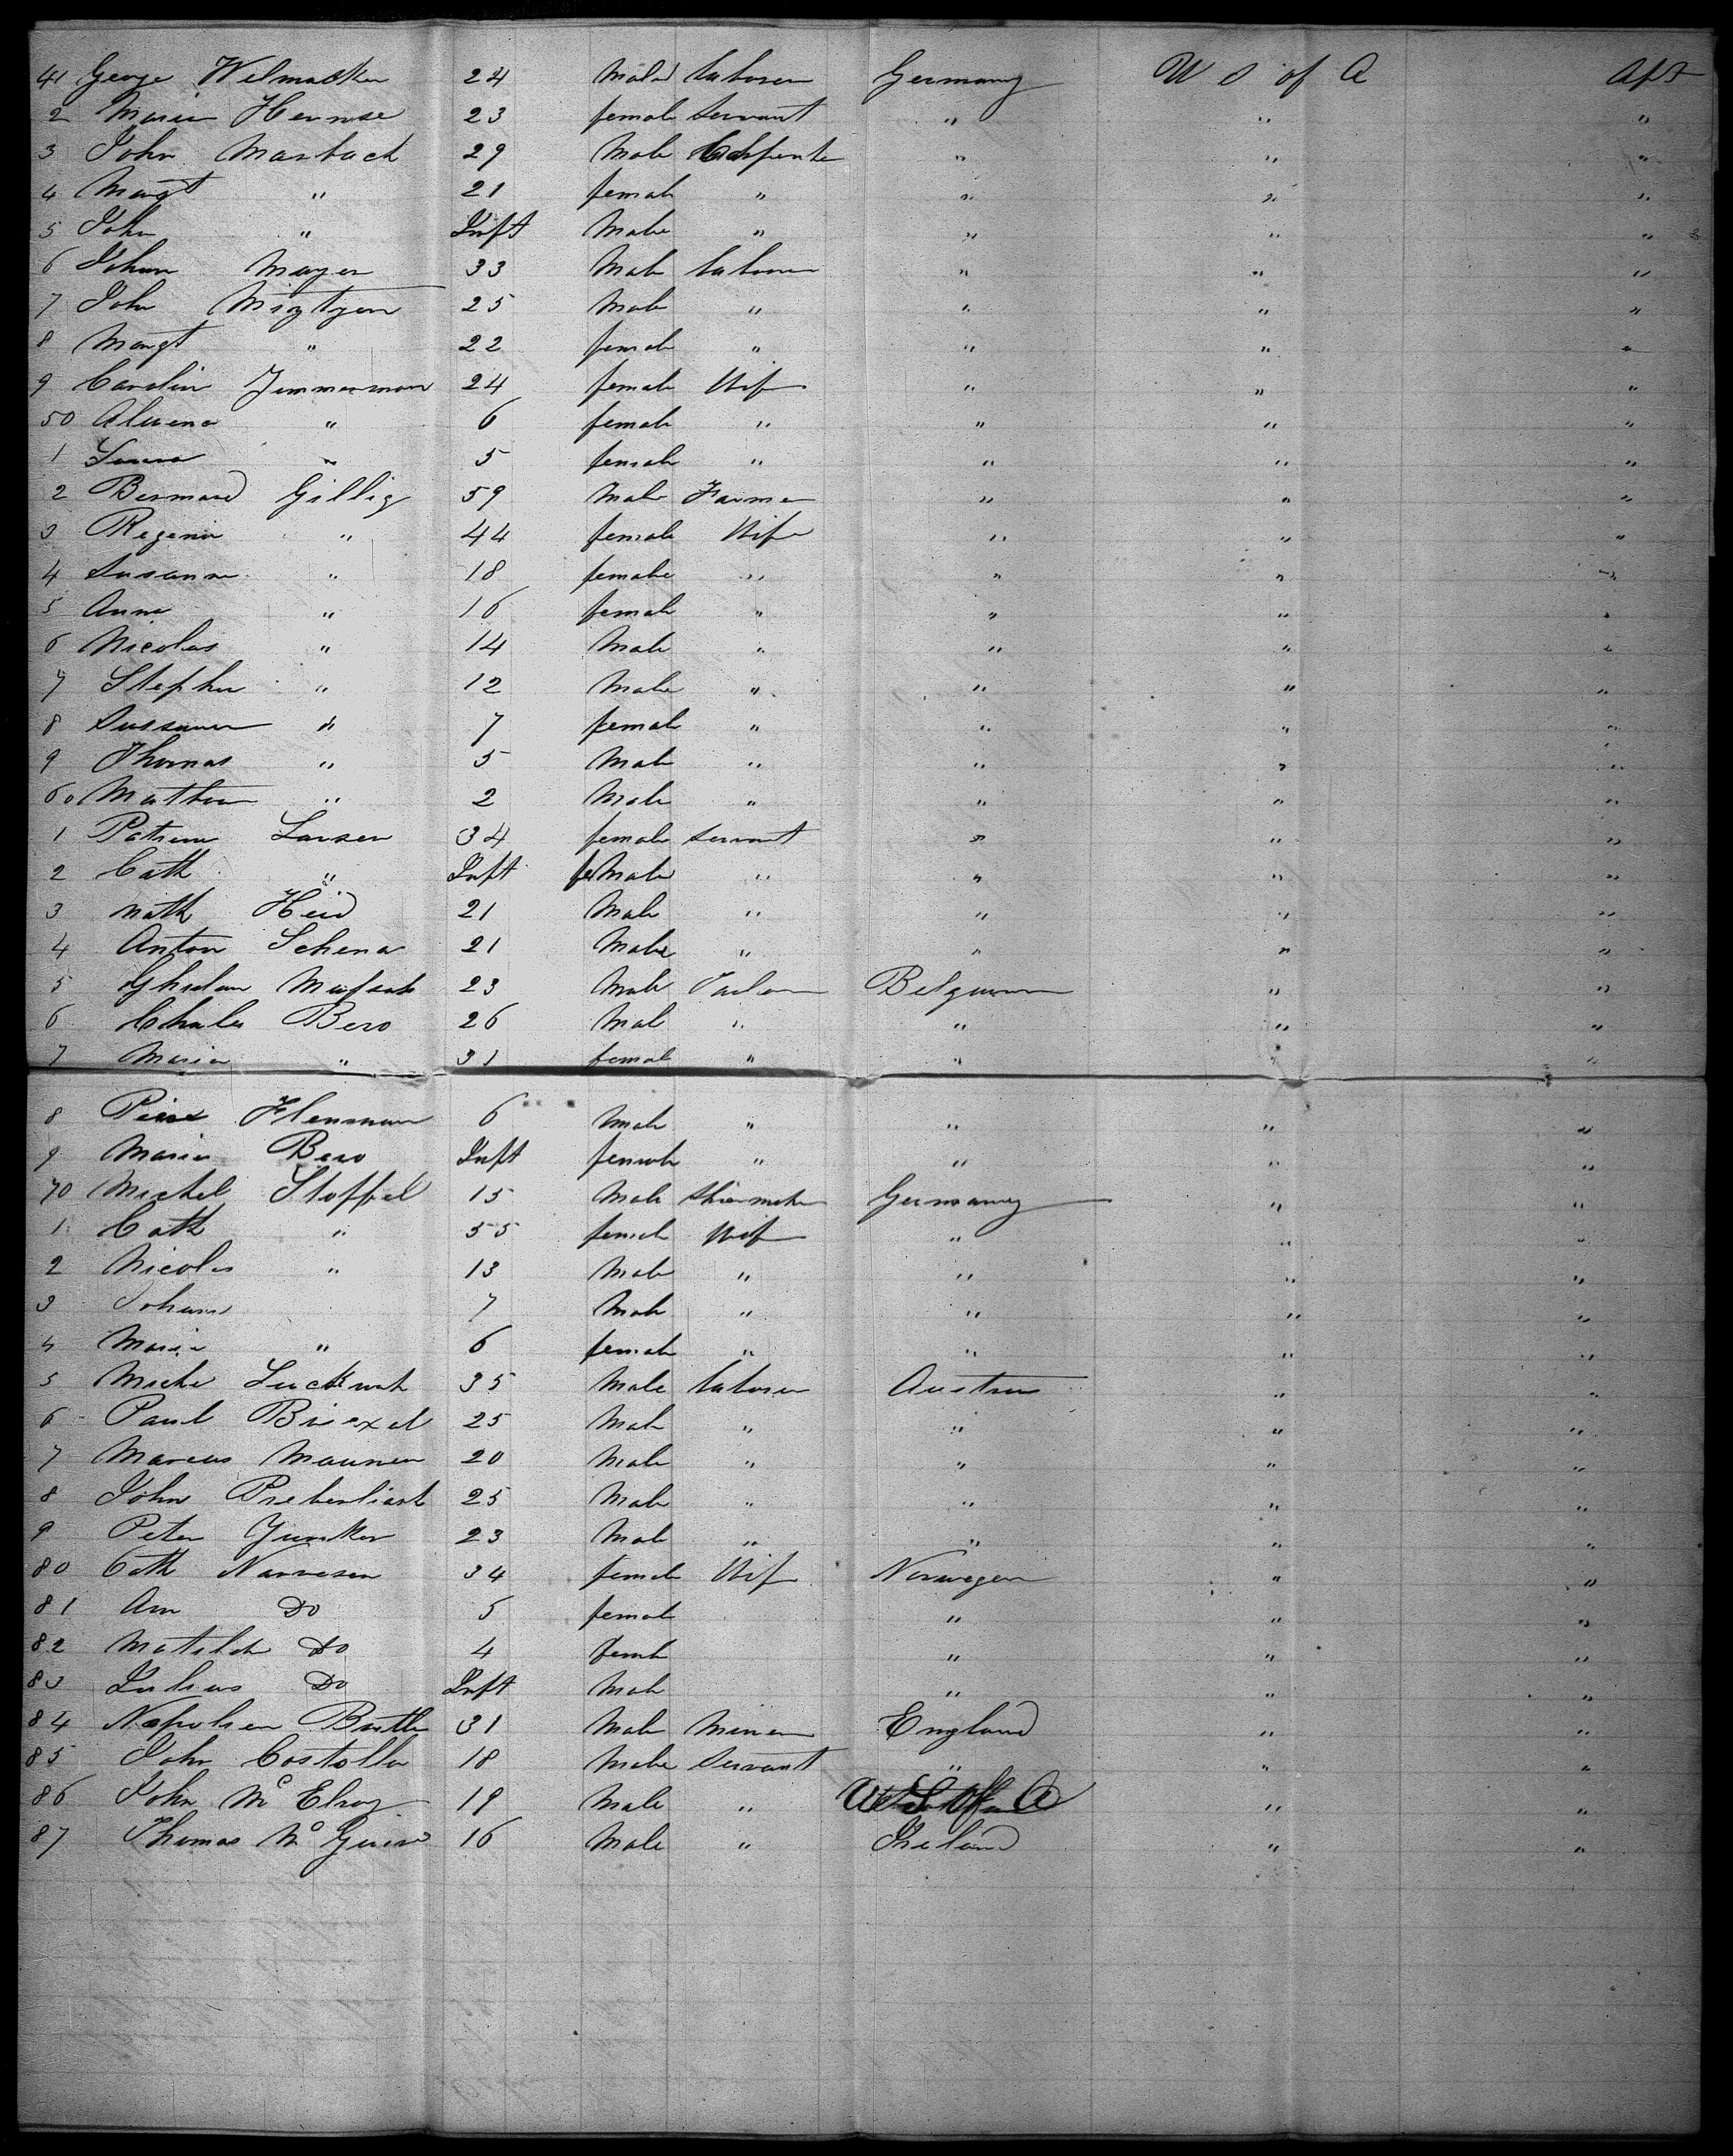 41 George Welmacker 24 Male Laborer Germany U S of A Aft
2 Maria Hernse 23 female Servant " " "
3 John Marbach 29 Male Carpenter " " "
4 Margt " 21 female " " " "
5 John " Inft Male " " " "
6 Johan Mayer 33 Male Laborer " " "
7 John 25 Male " " " "
8 Margt " 22 female " " " "
9 Carolin Zimmerman 24 female Wife " " "
50 Alwena " 6 female " " " "
1 Laura " 5 female " " " "
2 Bernard Gillig 59 Male Farmer " " "
3 Regenia " 44 female Wife " " "
4 Susanna " 18 female " " " "
5 Anna " 16 female " " " "
6 Nicolas " 14 Male " " " "
7 Stephen " 12 Male " " " "
8 " 7 female " " " "
9 Thomas " 5 Male " " " "
60 " 2 Male " " " "
1 Larsen 34 female Servant " " "
2 Cath " Inft feMale " " " "
3 Math Heid 21 Male " " " "
4 Anton Schena 21 Male " " " "
5 23 Male Belgium " "
6 Charles Bero 26 Male " " " "
7 Maria " 31 female " " " "
8 6 Male " " " "
9 Maria Bero Inft female " " " "
70 Michel Stoffel 15 Male Shoemaker Germany " "
1 Cath " 55 female Wife " " "
2 Nicolas " 13 Male " " " "
3 Johann 7 Male " " " "
4 Maria " 6 female " " " "
5 35 Male Laborer Austria " "
6 Paul 25 Male " " " "
7 Marcus 20 Male " " " "
8 John 25 Male " " " "
9 Peter Junker 23 Male " " " "
80 Cath Narvesen 34 female Wife Norwegen " "
81 Ann Do 5 female " " "
82 Matilda Do 4 female " " "
83 Julius Do Inft Male " " "
84 Napolien 31 Male Miner England " "
85 John Costollo 18 Male Servant " " "
86 John McElroy 19 Male " U S of A " "
87 Thomas McGuire 16 Male " Ireland " "